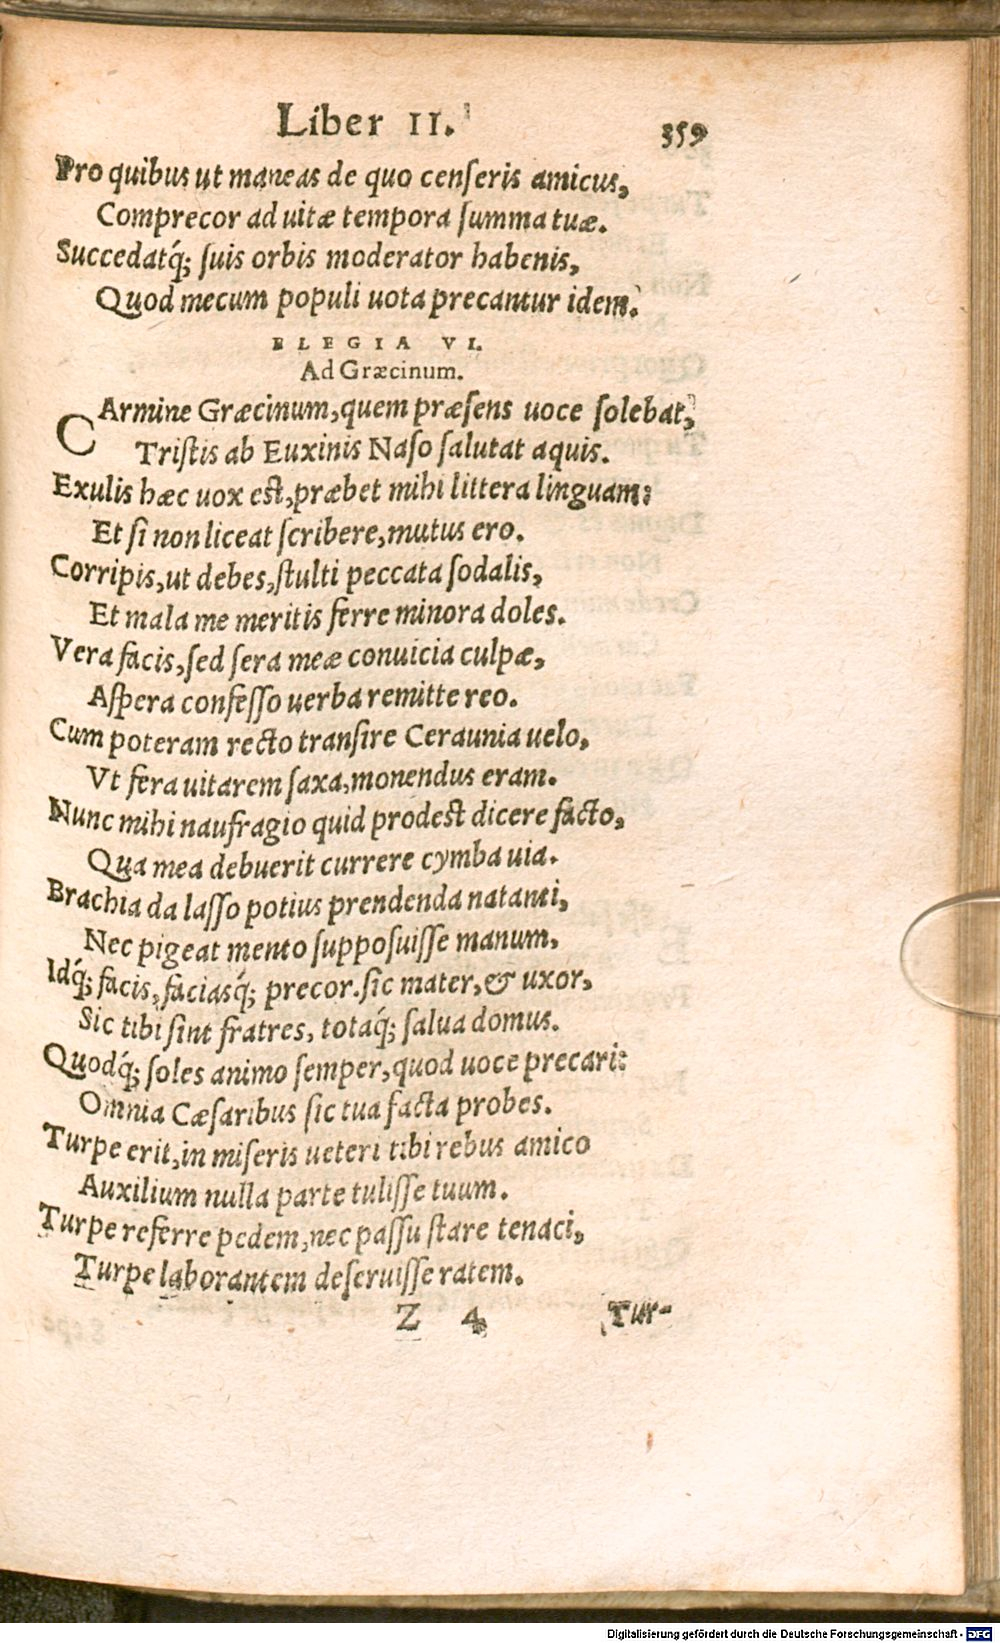 Liber II. 359
Pro quibus ut maneas de quo censeris amicus,
Comprecor ad uitæ tempora summa tuæ.
Succedatq́; suis orbis moderator habenis,
Quod mecum populi uota precantur idem.
ELEGIA VI.
Ad Græcinum.
CArmine Græcinum, quem præsens uoce solebat,
Tristis ab Euxinis Naso salutat aquis.
Exulis hæc uox est, præbet mihi littera linguam:
Et si non liceat scribere, mutus ero.
Corripis, ut debes, stulti peccata sodalis,
Et mala me meritis ferre minora doles.
Vera facis, sed sera meæ conuicia culpæ,
Aspera confesso uerba remitte reo.
Cum poteram recto transire Ceraunia uelo,
Vt fera uitarem saxa, monendus eram.
Nunc mihi naufragio quid prodest dicere facto,
Qua mea debuerit currere cymba uia.
Brachia da lasso potius prendenda natanti,
Nec pigeat mento supposuisse manum,
Idq́; facis, faciasq́; precor. sic mater, & uxor,
Sic tibi sint fratres, totaq́; salua domus.
Quodq́; soles animo semper, quod uoce precari:
Omnia Cæsaribus sic tua facta probes.
Turpe erit, in miseris ueteri tibi rebus amico
Auxilium nulla parte tulisse tuum.
Turpe referre pedem, nec passu stare tenaci,
Turpe laborantem deseruisse ratem.
Z 4 Tur-
Digitalisierung gefördert durch die Deutsche Forschungsgemeinschaft - DFG